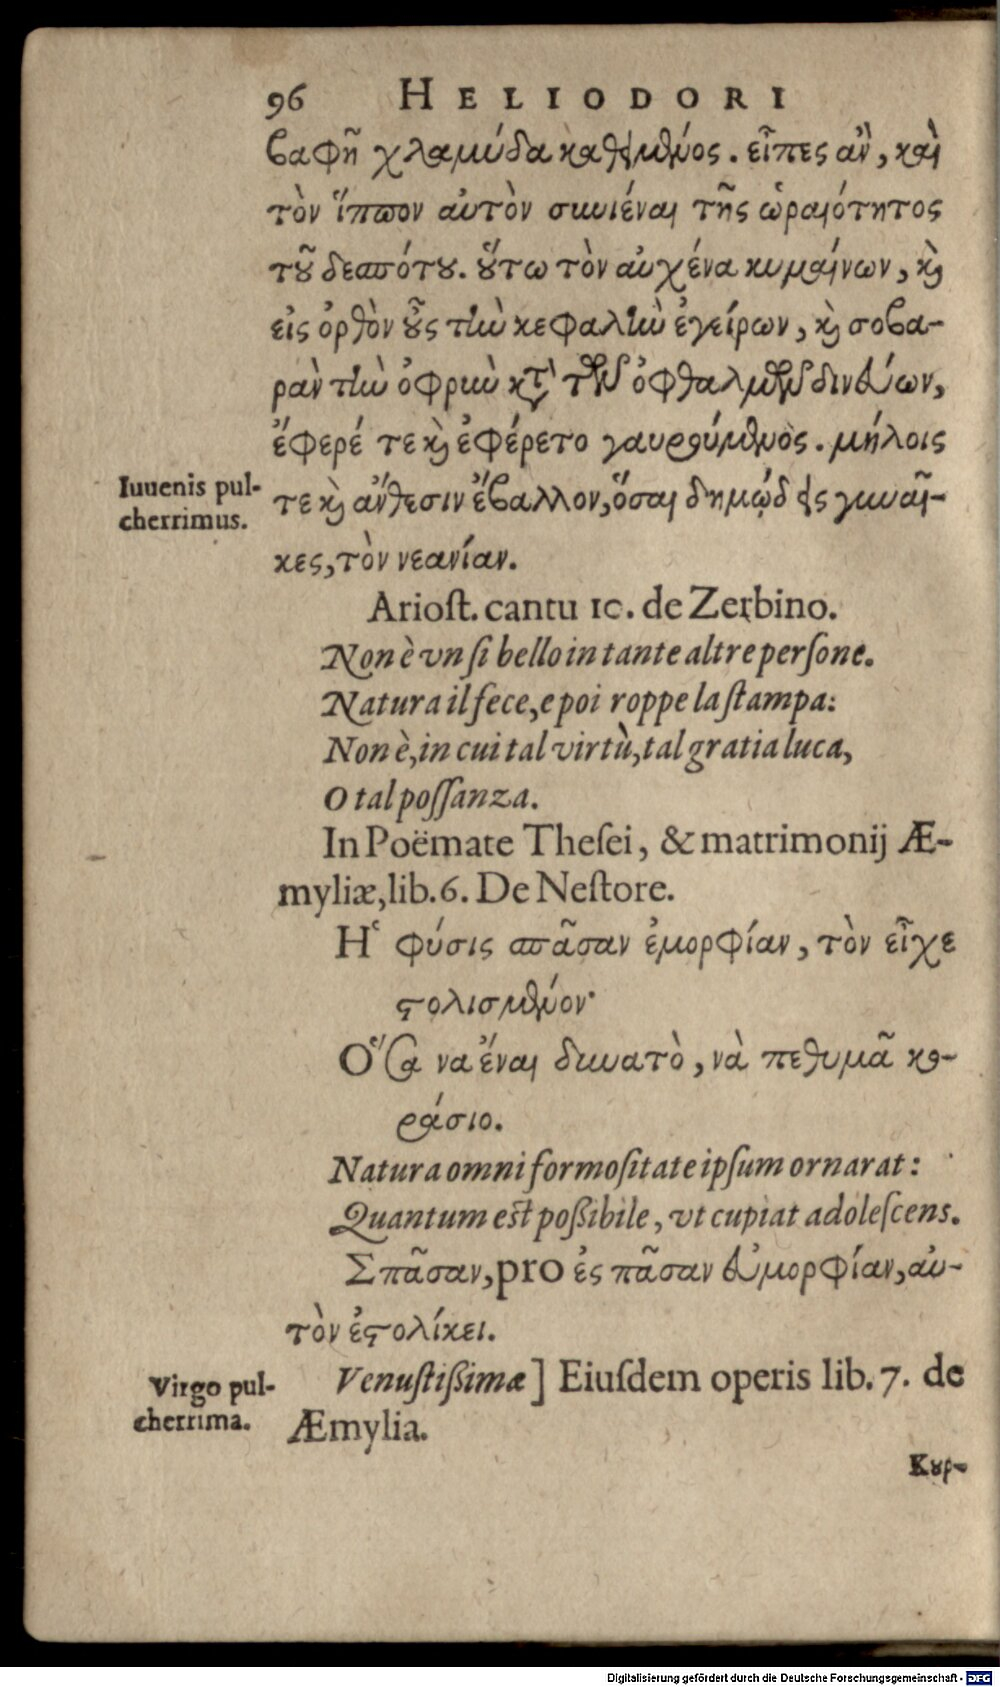 96 HELIODORI
βαφῆ χλαμύδα καθειμένος. εἶπες ἂν, καὶ
τὸν ἵππον αὐτὸν συνιέναι τῆς ὡραιότητος
τοῦ δεσπότου. οὕτω τὸν αὐχένα κυμαίνων, καὶ
εἰς ὀρθὸν οὖς τὴν κεφαλὴν ἐγείρων, καὶ σοβα-
ρὰν τὴν ὀφρὺν κατὰ τῶν ὀφθαλμῶν δινεύων,
ἔφερέ τε καὶ ἐφέρετο γαυρούμενος. μήλοις
Iuuenis pul-
cherrimus.
τε καὶ ἄνθεσιν ἔβαλλον, ὅσαι δημώδεις γυναῖ-
κες, τὸν νεανίαν.
Arioſt. cantu 1c. de Zerbino.
Non è vn ſi bello in tante altre perſone.
Natura il fece, e poi roppe la ſtampa:
Non è, in cui tal virtù, tal gratia luca,
O tal poſſanza.
In Poëmate Theſei, & matrimonij Æ-
myliæ, lib. 6. De Neſtore.
Ἡ φύσις σπᾶσαν ἐμορφίαν, τὸν εἶχε
στολισμένον·
Ὅσα να ἔναι δυνατὸ, νὰ πεθυμᾶ κο-
ράσιο.
Natura omni formoſitate ipſum ornarat:
Quantum eſt poßibile, vt cupiat adoleſcens.
Σπᾶσαν, pro ἐς πᾶσαν εὐμορφίαν, αὐ-
τὸν ἐστολίκει.
Virgo pul-
cherrima.
Venuſtißimæ] Eiuſdem operis lib. 7. de
Æmylia.
Κουρ-
Digitalisierung gefördert durch die Deutsche Forschungsgemeinschaft - DFG